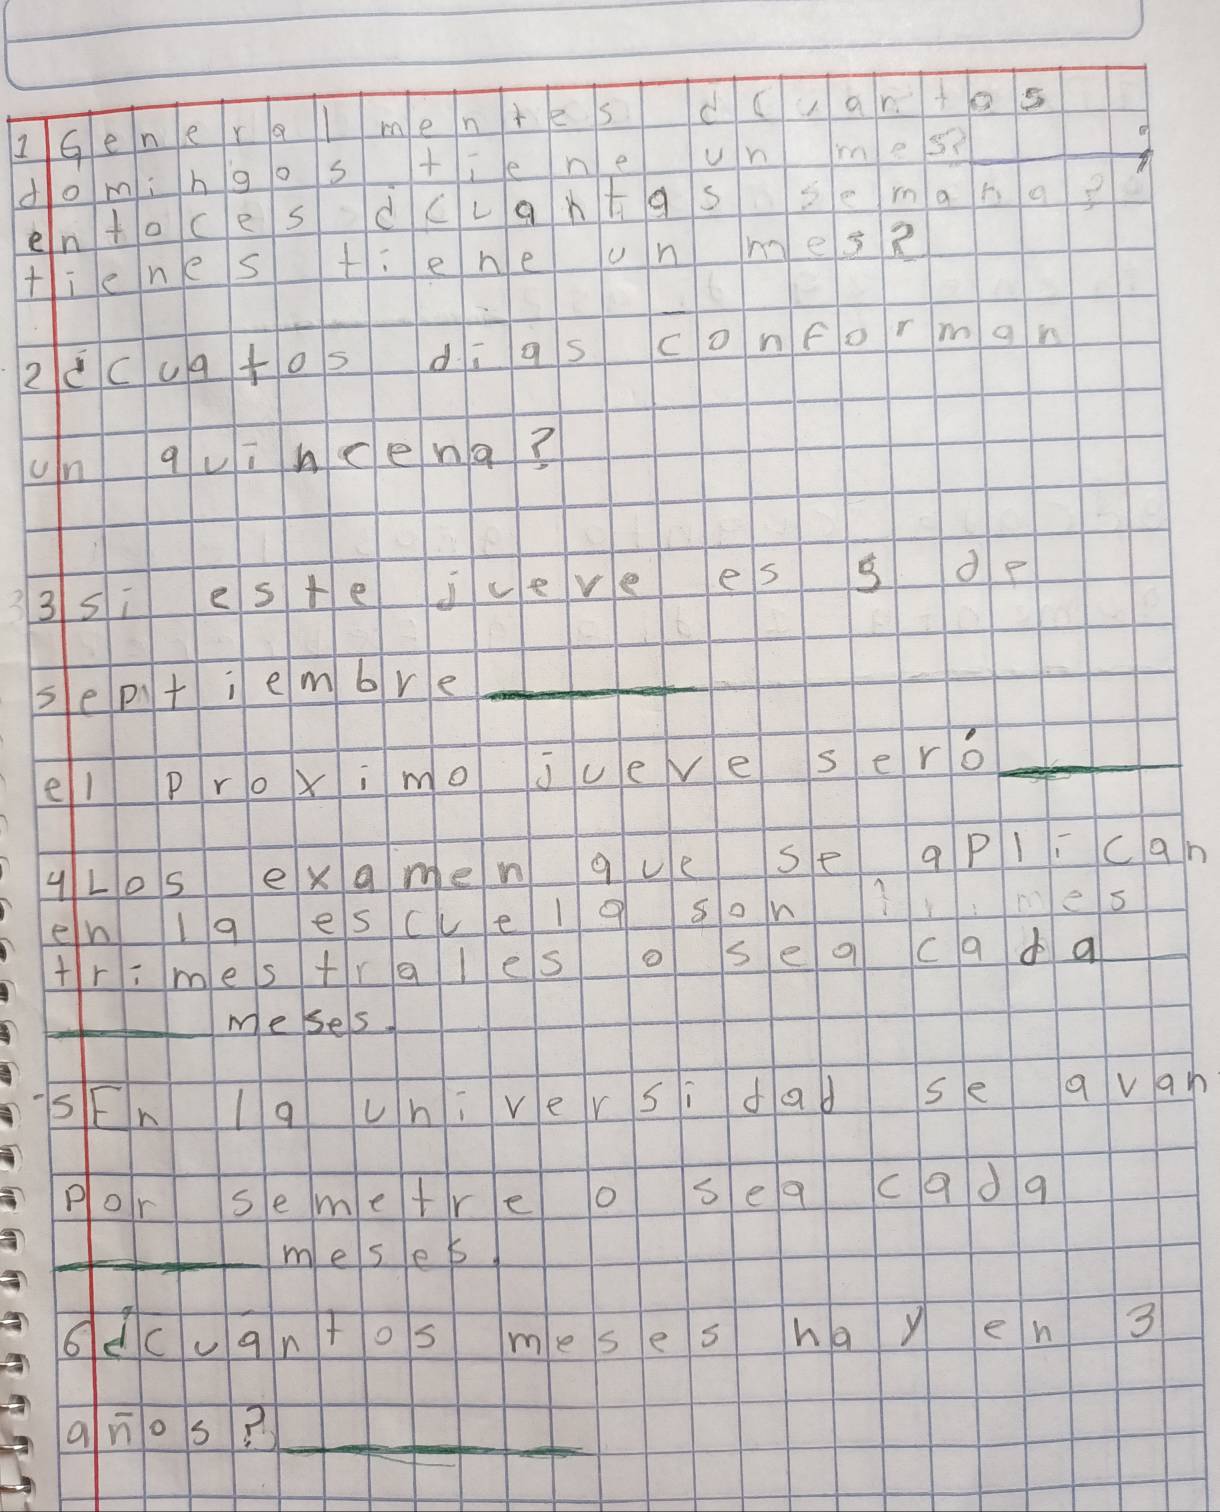 1 Generalmentes ¿cuantos
domingos tiene un mes?
entoces ¿cuantas semana?
tienes tiene un mes?
2 ¿cuatos dias conforman
un quincena?
3 si este jueve es 5 de
septiembre
el proximo jueve seró
4 Los examen que se aplican
en la escuela son
trimestrales o sea cada
meses.
5 En la universidad se avan
por semetre o sea cada
meses.
6 ¿cuántos meses hay en 3
años?